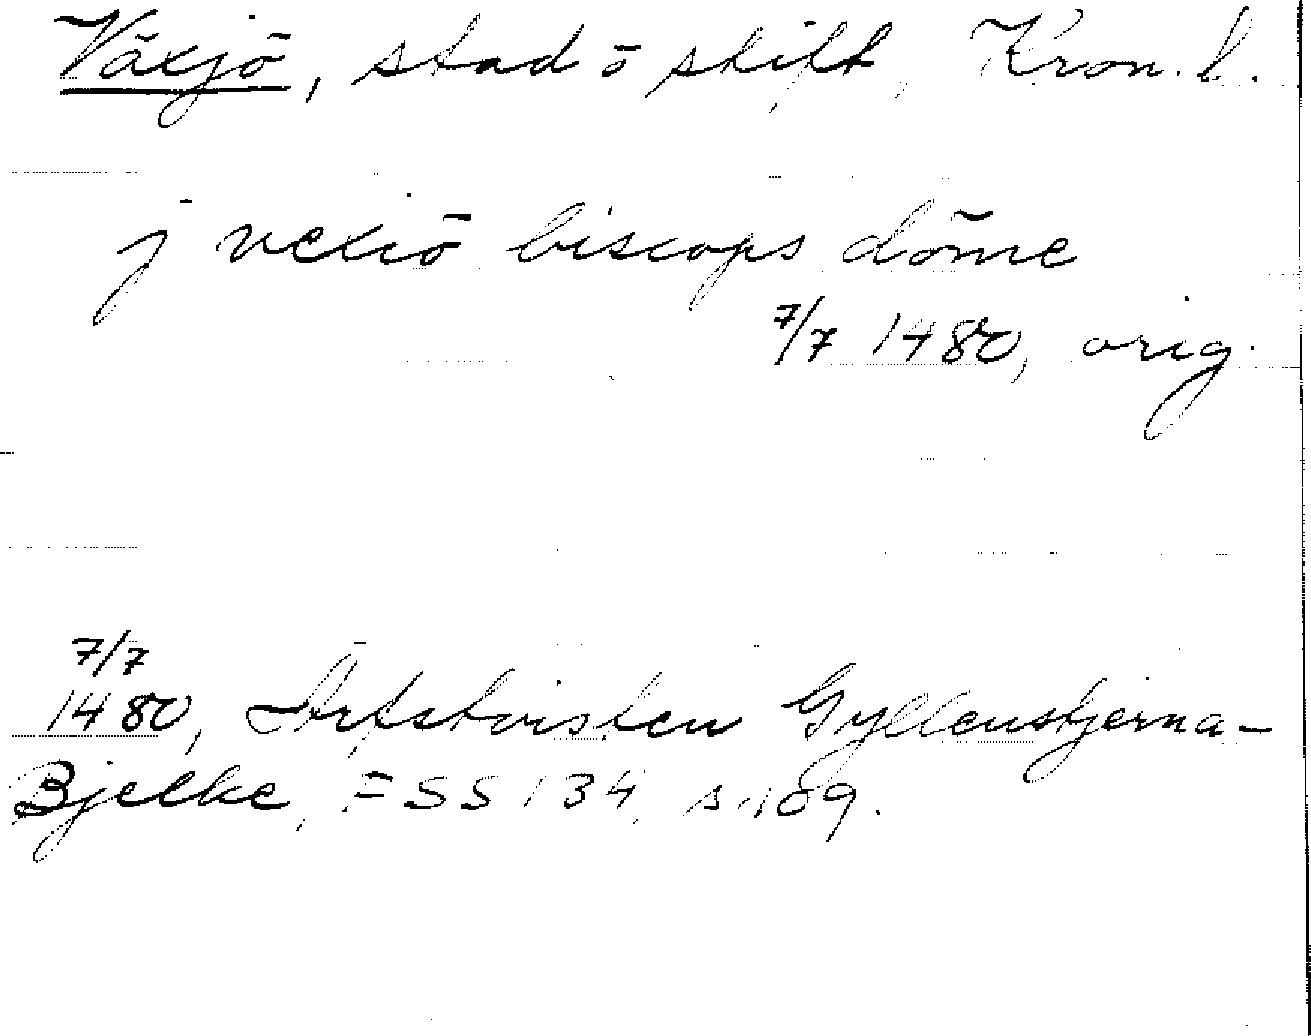 Växjö, stad o skift, Kron. l.
j vexiö biscops döme
7/7 1480, orig.
7/7
1480, Arfstvisten Gyllenstjerna-
Bjelke, FSS 134, s. 109.